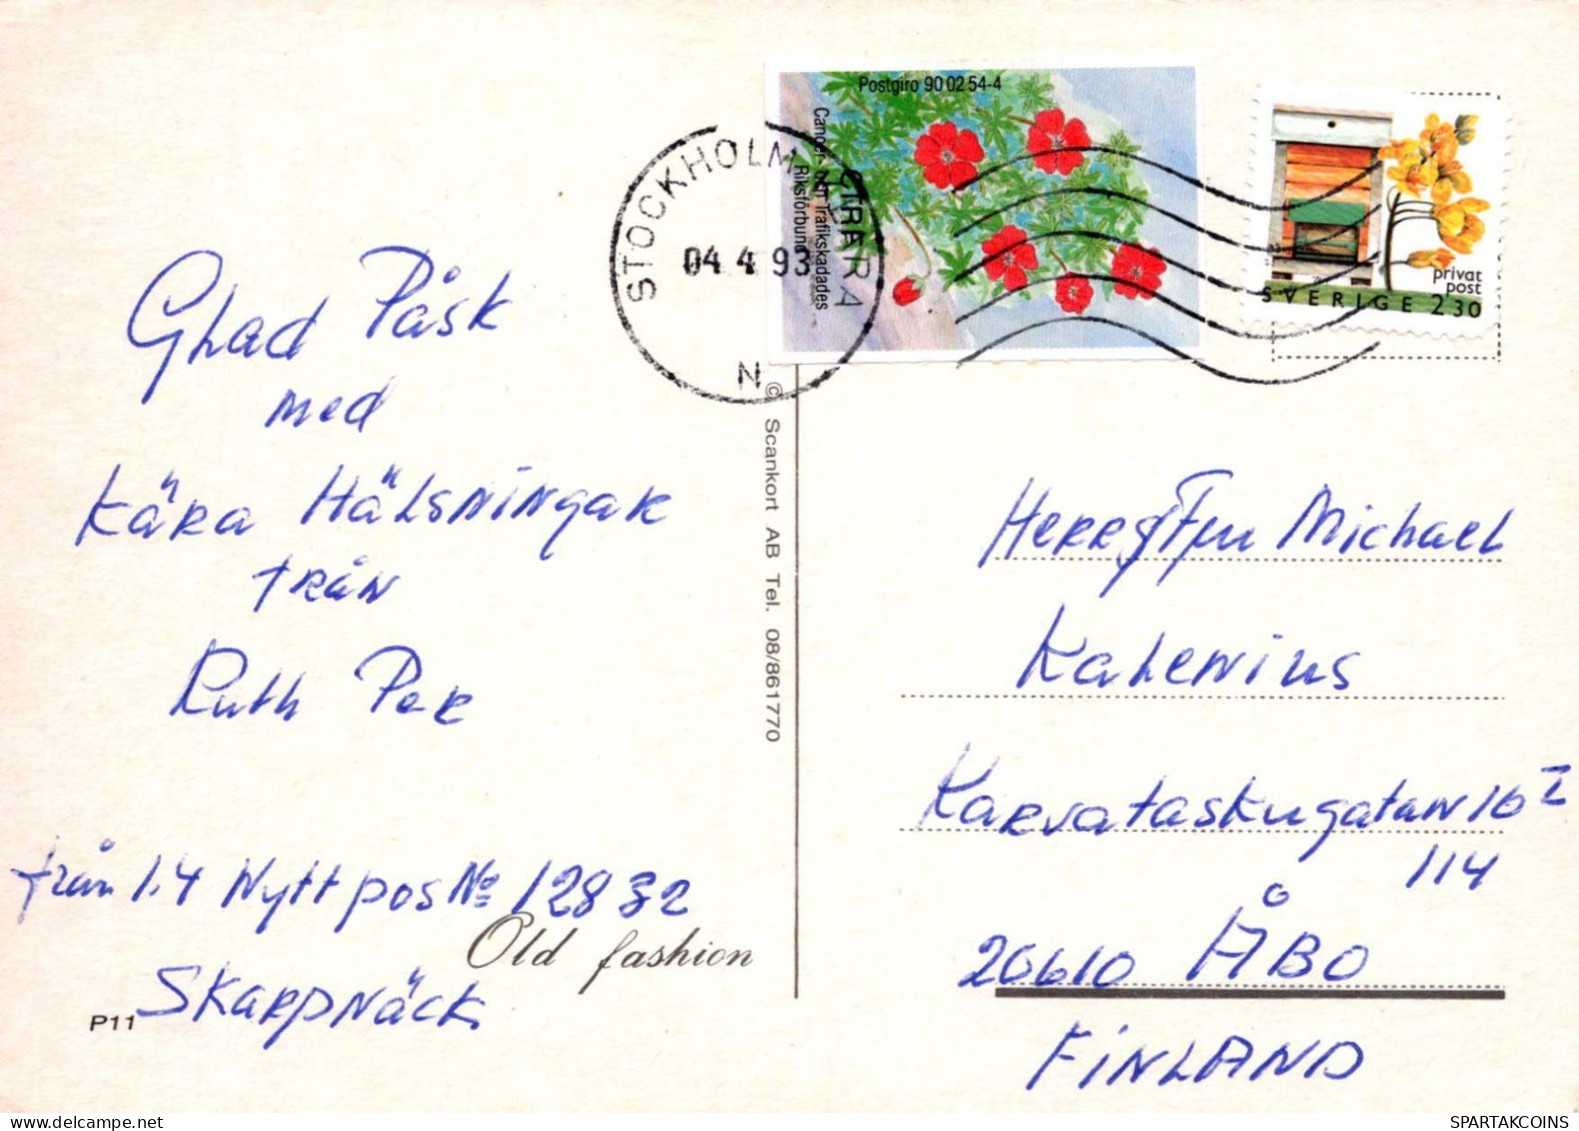 Postgiro 90 02 54-4
Cancer- och Trafikskadades
Riksförbund
STOCKHOLM
04.4.93
N
privat
post
SVERIGE 2.30
Glad Påsk
med
Kära Hälsningar
från
Ruth Per
från 1.4 Nytt pos No 12832
Skarpnäck
Old fashion
P11
© Scankort AB Tel. 08/861770
Herr & Fru Michael
Kalenius
Karvataskugatan 16 I
114
20610 ÅBO
FINLAND
SPARTAKCOINS